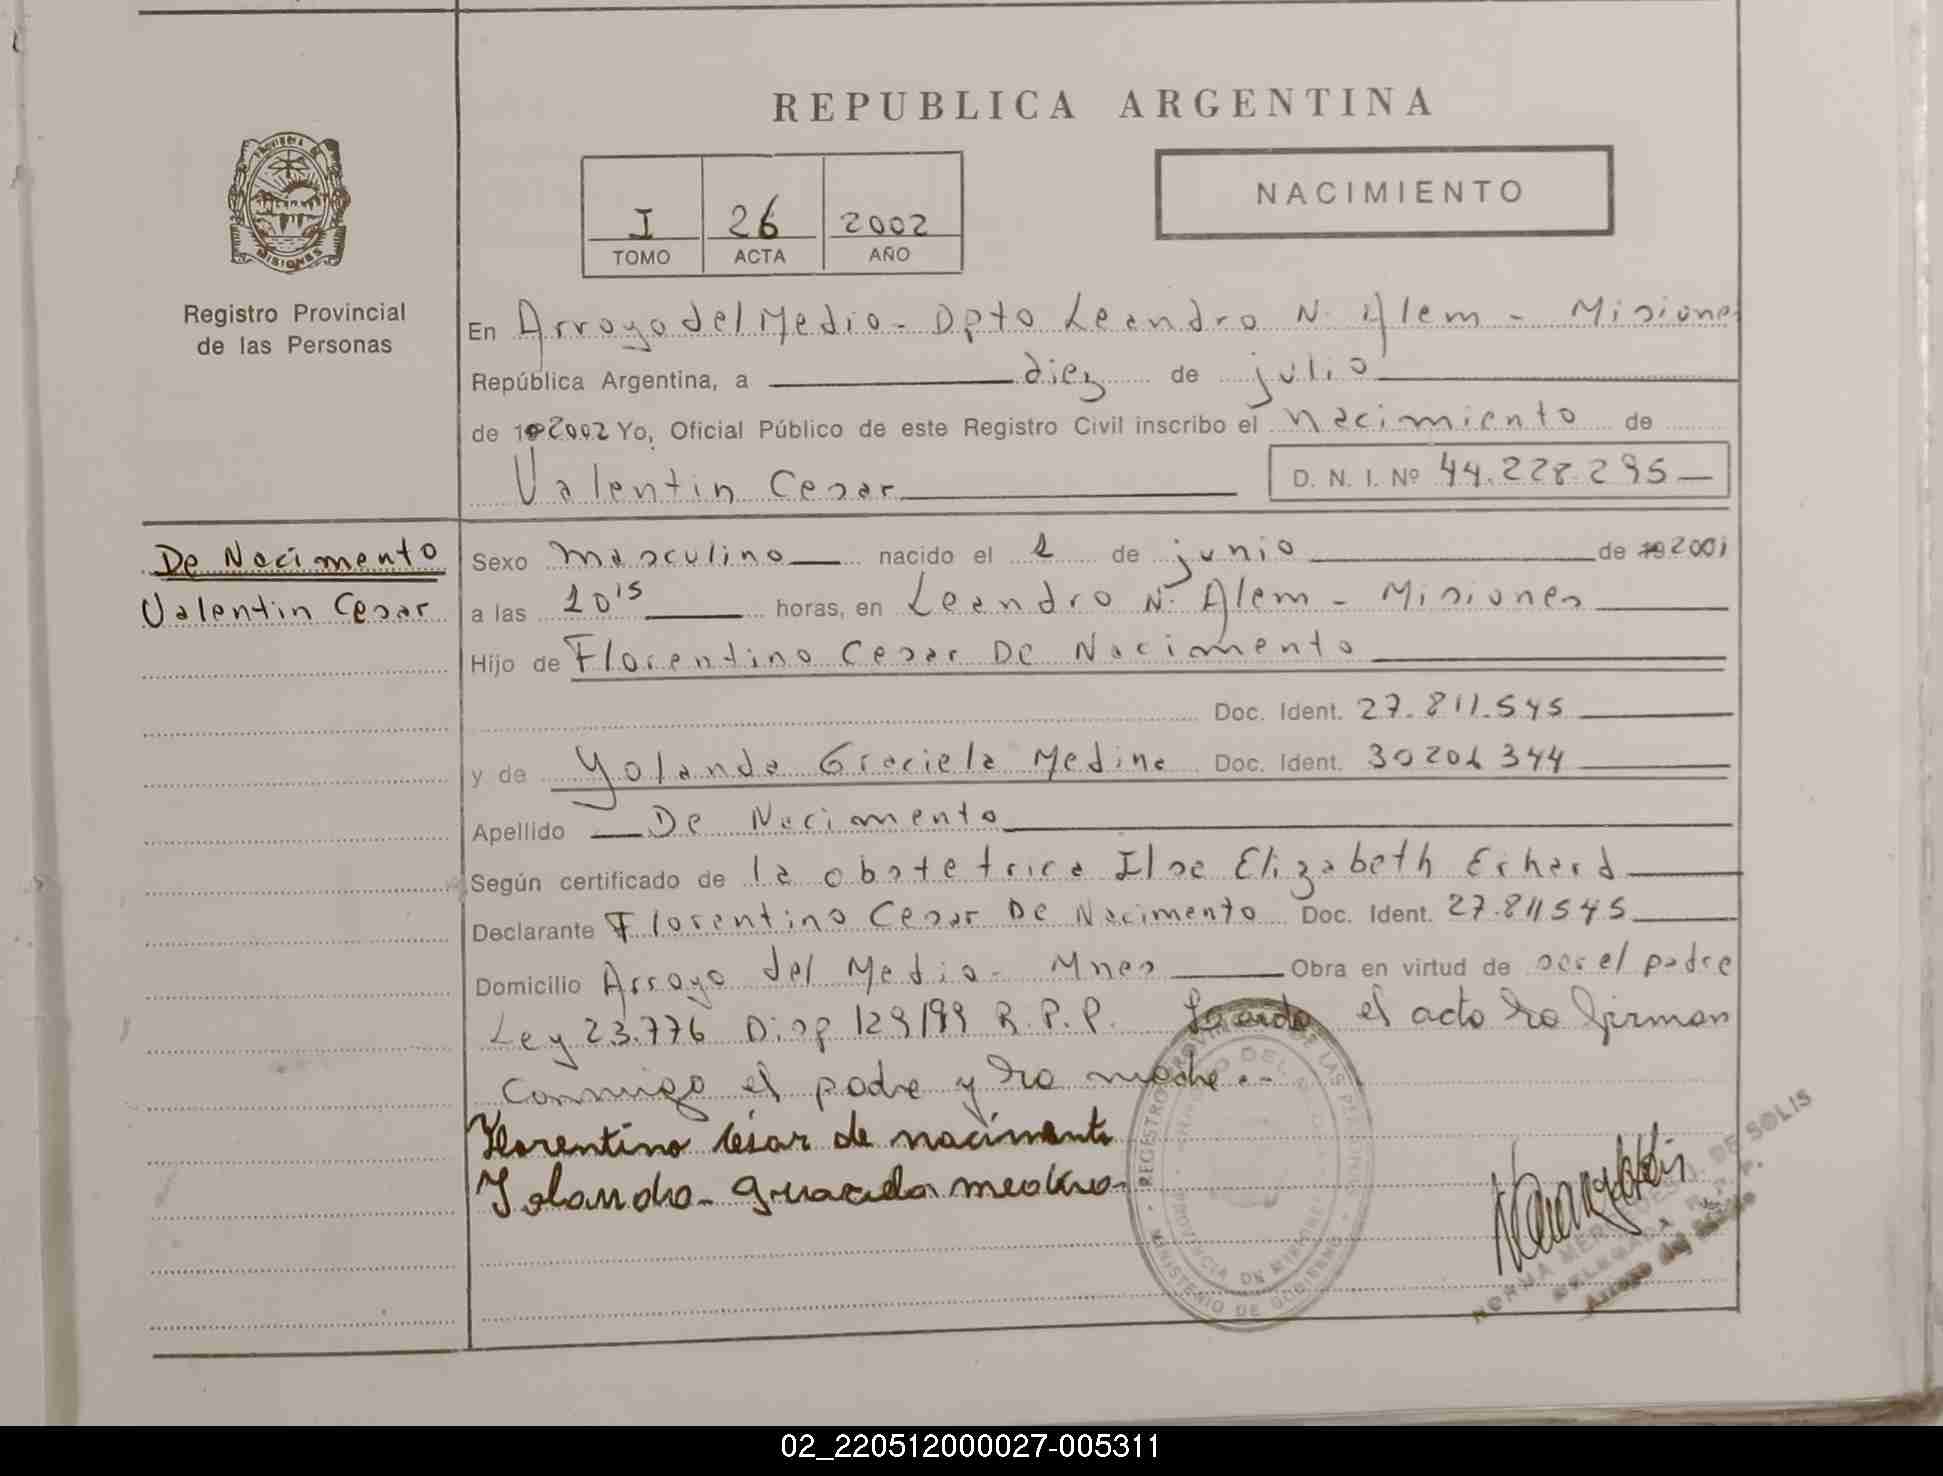 REPUBLICA ARGENTINA
I 26 2002
TOMO ACTA AÑO
NACIMIENTO
MISIONES
Registro Provincial
de las Personas
En Arroyo del Medio - Dpto Leandro N. Alem - Misiones
República Argentina, a diez de julio
de 2002 Yo, Oficial Público de este Registro Civil inscribo el nacimiento de
Valentin Cesar D. N. I. Nº 44.228.295
De Nacimento
Valentin Cesar
Sexo masculino nacido el 1 de junio de 2001
a las 10 15 horas, en Leandro N. Alem - Misiones
Hijo de Florentino Cesar De Nacimento
Doc. Ident. 27.811.545
y de Yolanda Graciela Medina Doc. Ident. 30201344
Apellido De Nacimento
Según certificado de la obstetrica Ilse Elizabeth Erhard
Declarante Florentino Cesar De Nacimento Doc. Ident. 27.811545
Domicilio Arroyo del Medio - Mnes Obra en virtud de ser el padre
Ley 23.776 Disp 129/99 R.P.P. el acto la firman
conmigo el padre y la madre.-
Florentino césar de nacimento
Yolanda graciela medina
REGISTRO PROVINCIAL DE LAS PERSONAS
MINISTERIO DE GOBIERNO
PROVINCIA DE MISIONES
NORMA DE SOLIS
DELEGADA R.P.P.
Arroyo del Medio
02_220512000027-005311